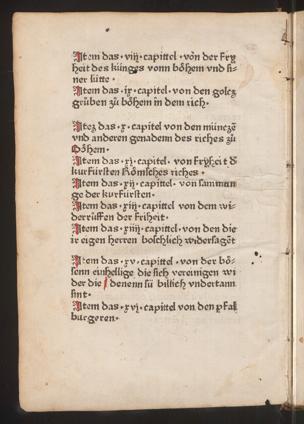 Item das · viij · capittel · von der fry
heit des künges vonn bȯhem vnd si-
ner lütte ·
Item das · ix · capitel · von den golcz
grüben zů bȯhem in dem rich ·
Itez das · x · capitel von den müncze̅
vnd anderen genaden̅ des riches zů
Bȯhem ·
Item das · xj · capitel · von fryheit d̕
kurfürsten Rȯmsches riches ·
Item das · xij · capitel · von samnun
ge der kurfürsten ·
Item das · xiij · capitel · von dem wi-
derrüffen der friheit ·
Item das · xiiij · capittel · von den die
ir eigen herren boschlich widersage̅t
Item das · xv · capittel · von der bȯ-
senn einhellige die sich vereinigen wi
der die denen sü billich vndertann
sint ·
Item das · xvj · capittel von den pfal
burgeren ·